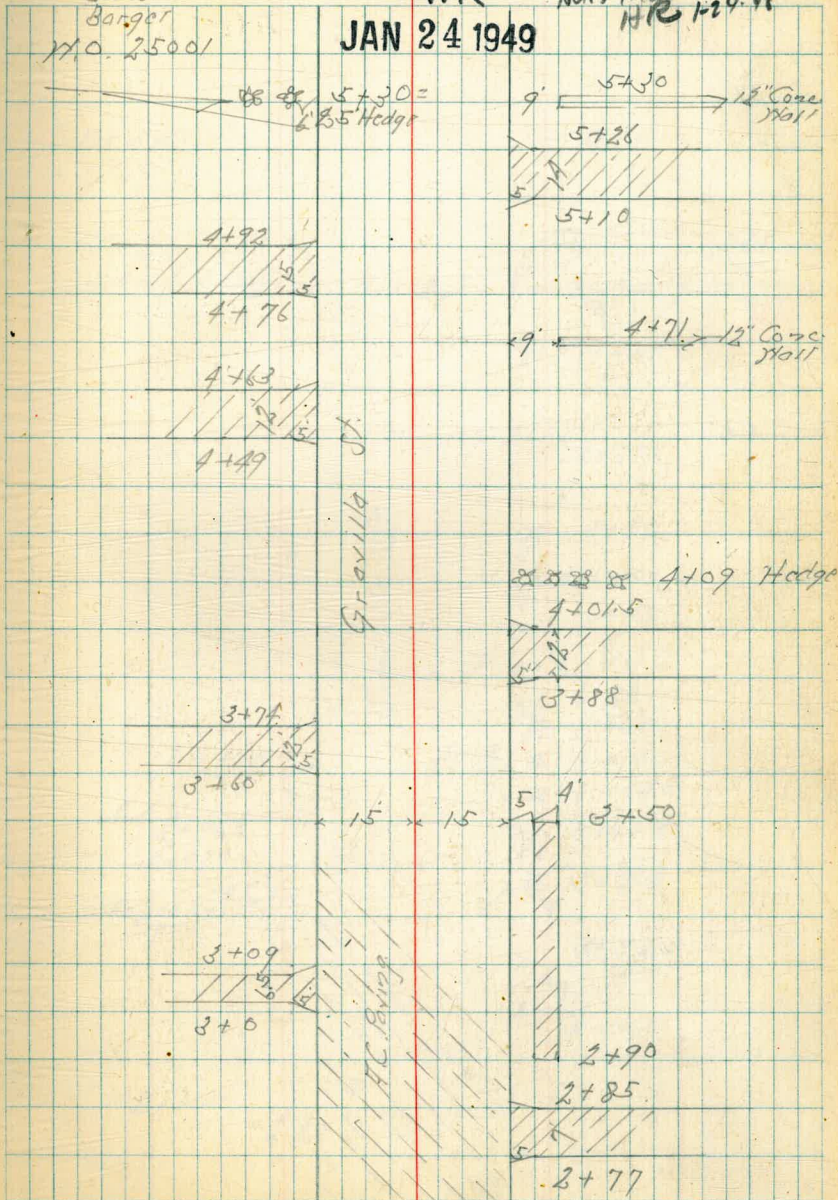 Barger
W.O. 25001
HR 1-24-49
JAN 24 1949
5+30 =
6' 25' Hedge
9' 5+30 12" Conc
Wall
5+26
14
5'
5+10
4+92
5'
4+76
9' 4+71 12" Conc.
Wall
4+63
12
5'
4+49
Gravilla St.
4+09 Hedge
4+01.5
12
5'
3+88
3+74
12
5'
3+60
15 15 5 4' 3+50
3+09
5'
3+0
A.C. Paving
2+90
2+85
7
5'
2+77